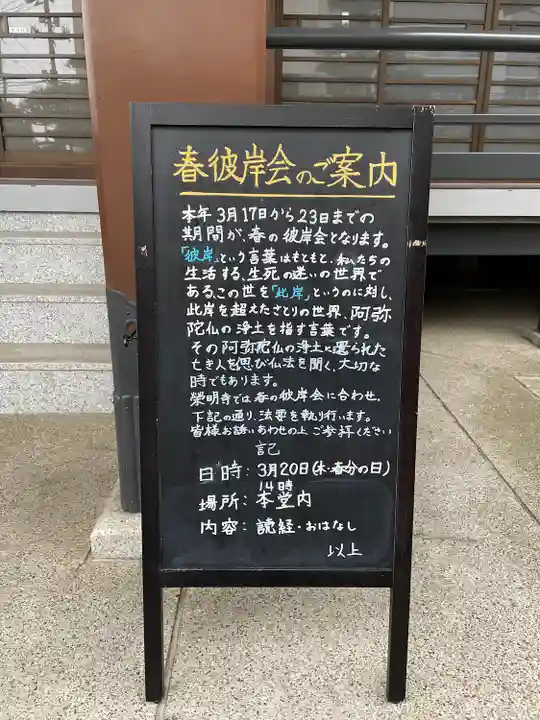 春彼岸会のご案内
本年3月17日から23日までの
期間が、春の彼岸会となります。
「彼岸」という言葉はもともと、私たちの
生活する、生死の迷いの世界で
ある、この世を「此岸」というのに対し、
此岸を超えたさとりの世界、阿弥
陀仏の浄土を指す言葉です。
その阿弥陀仏の浄土に還られた
亡き人を思び仏法を聞く、大切な
時でもあります。
榮明寺では春の彼岸会に合わせ、
下記の通り、法要を執り行います。
皆様お誘いあわせの上ご参拝ください
記
日時：3月20日(木・春分の日)
14時
場所：本堂内
内容：読経・おはなし
以上